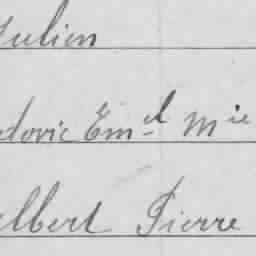 Julien
dovic Em.el Mie
lbert Pierre